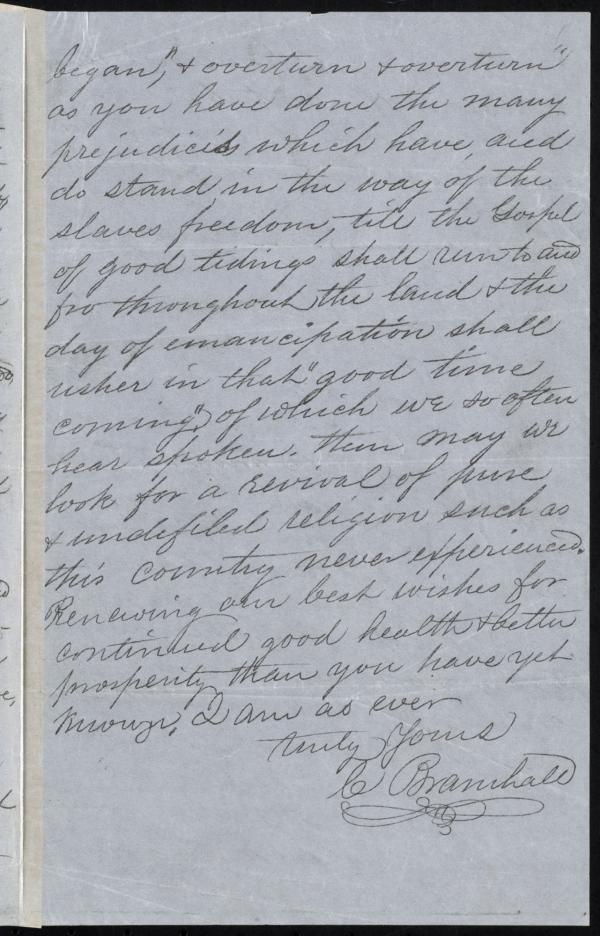 began", & overturn & overturn"
as you have done the many
prejudices which have and
do stand in the way of the
slaves freedom, till the Gospel
of good tidings shall run to and
fro throughout the land & the
day of emancipation shall
usher in that "good time
coming", of which we so often
hear spoken. then may we
look for a revival of pure
& undefiled religion such as
this country never experienced.
Renewing our best wishes for
continued good health & better
prosperity than you have yet
known, I am as ever
truly Yours
C Bramhall